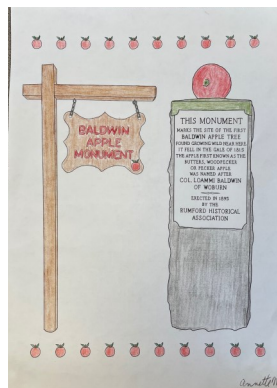 BALDWIN
APPLE
MONUMENT
THIS MONUMENT
MARKS THE SITE OF THE FIRST
BALDWIN APPLE TREE
FOUND GROWING WILD NEAR HERE.
IT FELL IN THE GALE OF 1815.
THE APPLE FIRST KNOWN AS THE
BUTTERS, WOODPECKER
OR PECKER APPLE
WAS NAMED AFTER
COL. LOAMMI BALDWIN
OF WOBURN
ERECTED IN 1895
BY THE
RUMFORD HISTORICAL
ASSOCIATION